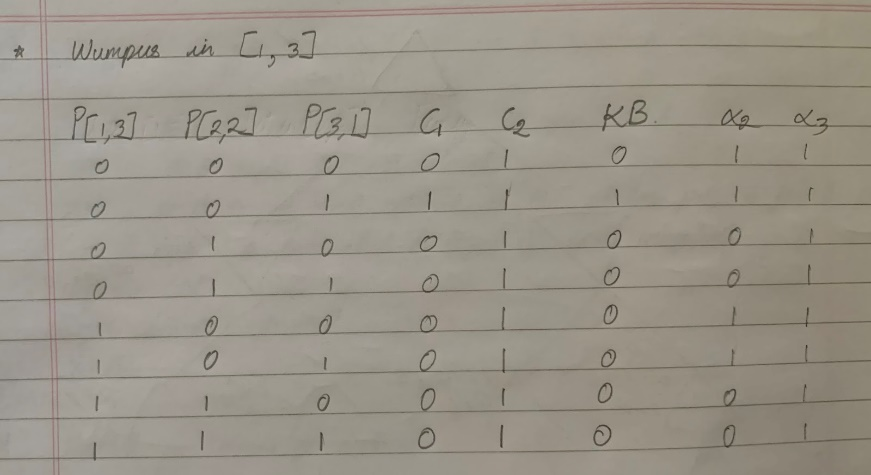 * Wumpus in [1, 3]
P[1,3] P[2,2] P[3,1] C₁ C₂ KB. α₂ α₃
0 0 0 0 1 0 1 1
0 0 1 1 1 1 1 1
0 1 0 0 1 0 0 1
0 1 1 0 1 0 0 1
1 0 0 0 1 0 1 1
1 0 1 0 1 0 1 1
1 1 0 0 1 0 0 1
1 1 1 0 1 0 0 1